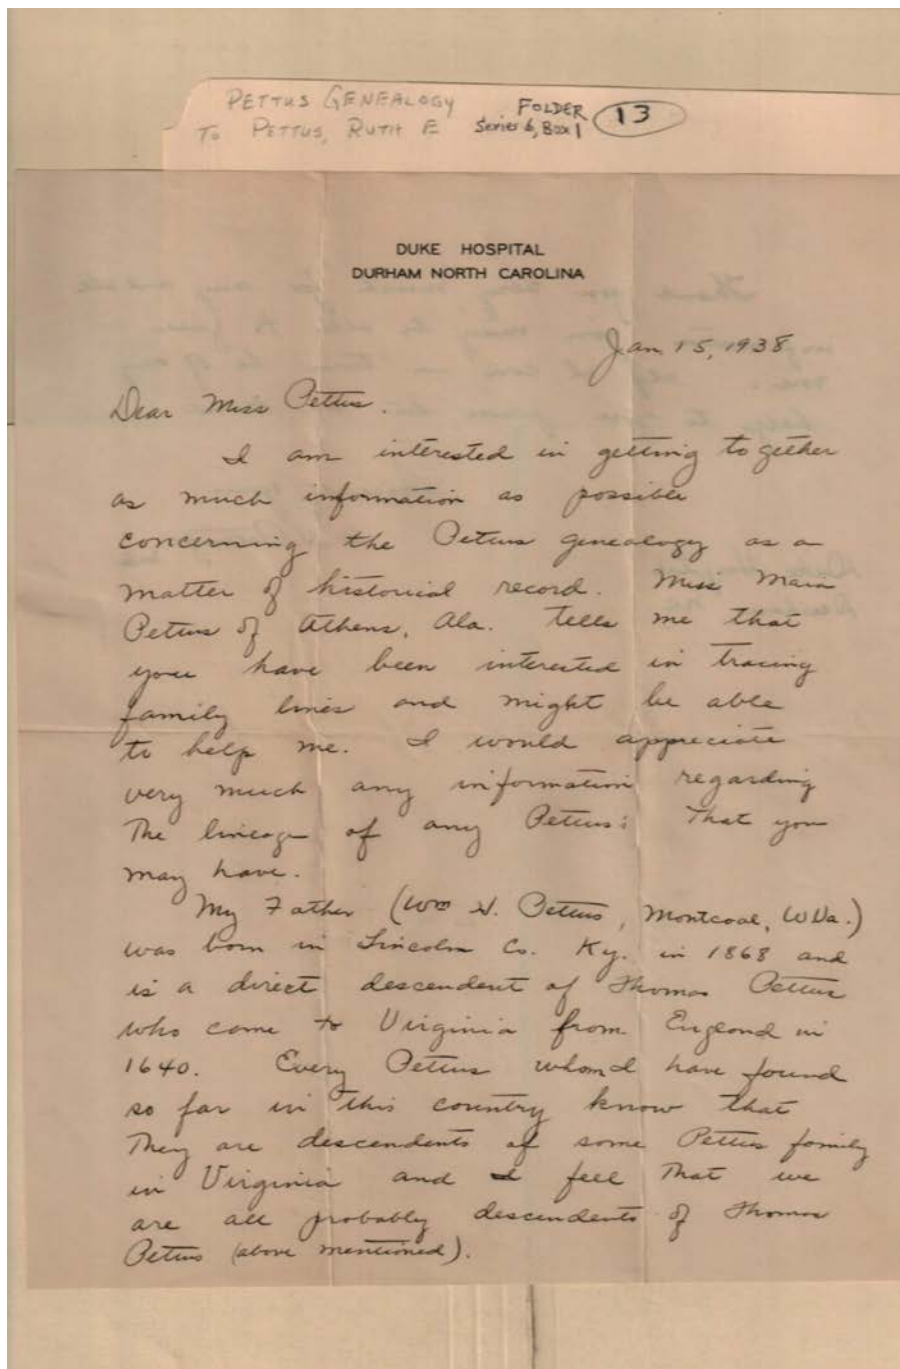 PETTUS GENEALOGY
TO PETTUS, RUTH E
FOLDER
Series 6, Box 1
13
DUKE HOSPITAL
DURHAM NORTH CAROLINA
Jan 15, 1938
Dear Miss Pettus.
I am interested in getting together
as much information as possible
concerning the Pettus genealogy as a
matter of historical record. Miss
Pettus of Athens, Ala. tells me that
you have been interested in tracing
family lines and might be able
to help me. I would appreciate
very much any information regarding
The lineage of any Pettus: That you
may have.
My Father (Wm H. Pettus, Montcoal, W Va.)
was born in Lincoln Co. Ky. in 1868 and
is a direct descendent of Thomas Pettus
who came to Virginia from England in
1640. Every Pettus whom I have found
so far in this country know that
They are descendents of some Pettus family
in Virginia and I feel That we
are all probably descendents of Thomas
Pettus (above mentioned).